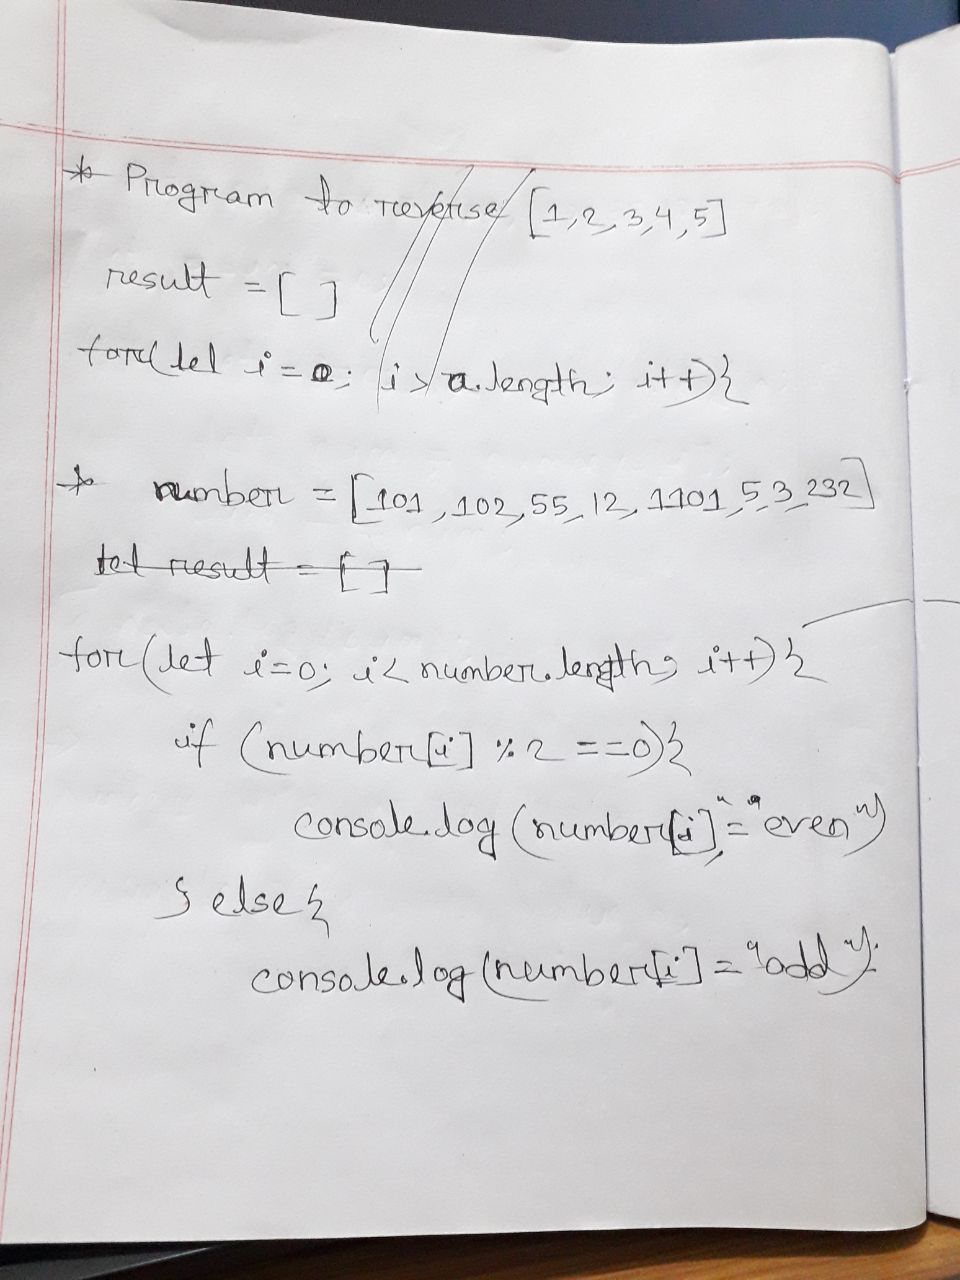 * Program to reverse [1,2,3,4,5]
result = [ ]
for(let i=0; i>a.length; i++){
* number = [101, 102, 55, 12, 1101, 5, 3, 232]
let result = [ ]
for(let i=0; i< number.length; i++){
if (number[i] % 2 ==0){
console.log(number[i],"="even")
} else{
console.log(number[i]="odd").